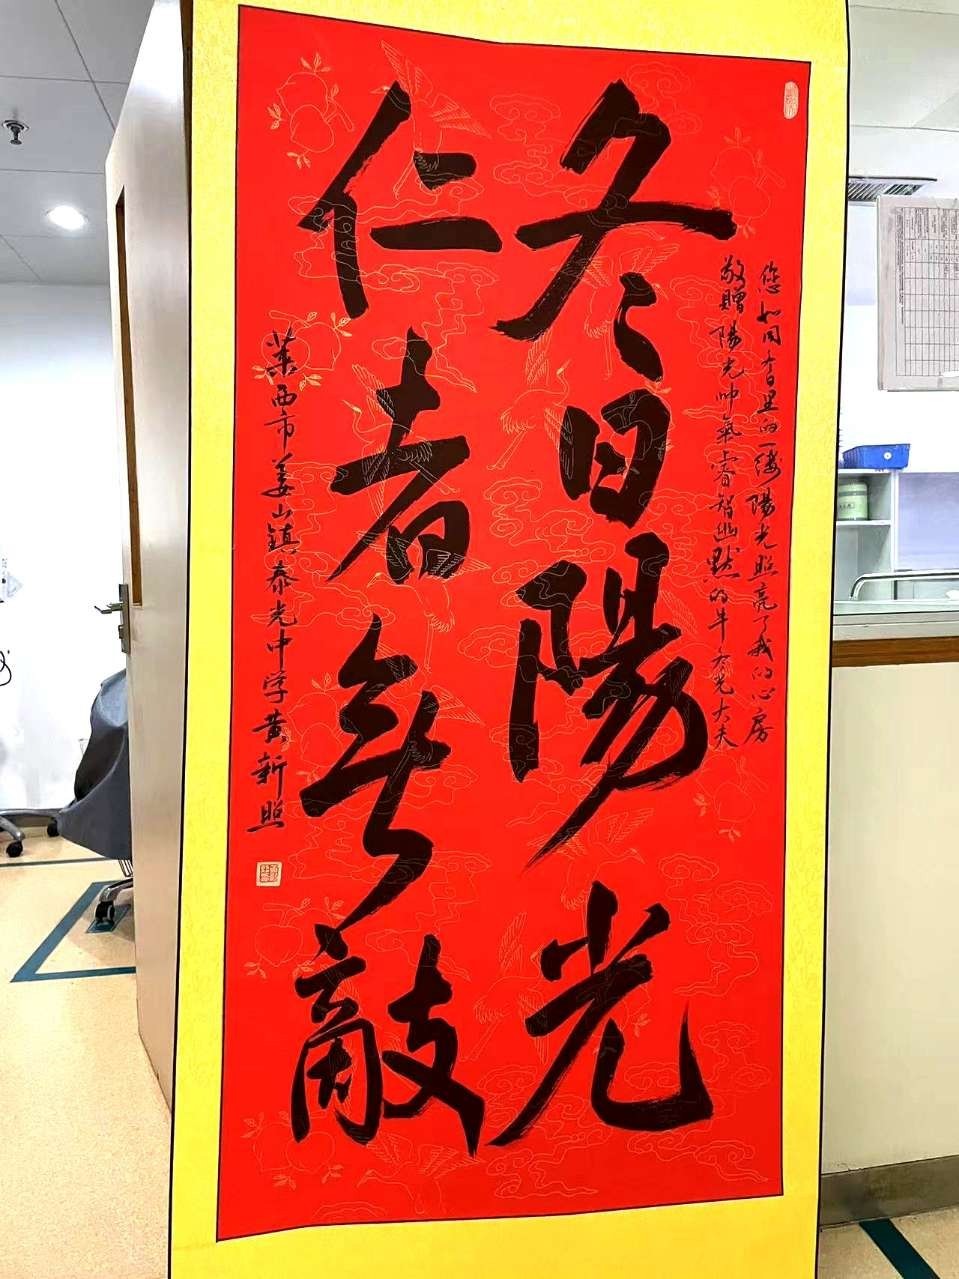 冬日陽光
仁者无敵
您如同冬日里的一缕陽光照亮了我的心房
敬贈陽光帅氣睿智幽默的牛
大夫
莱西市姜山鎮泰光中学黄新照